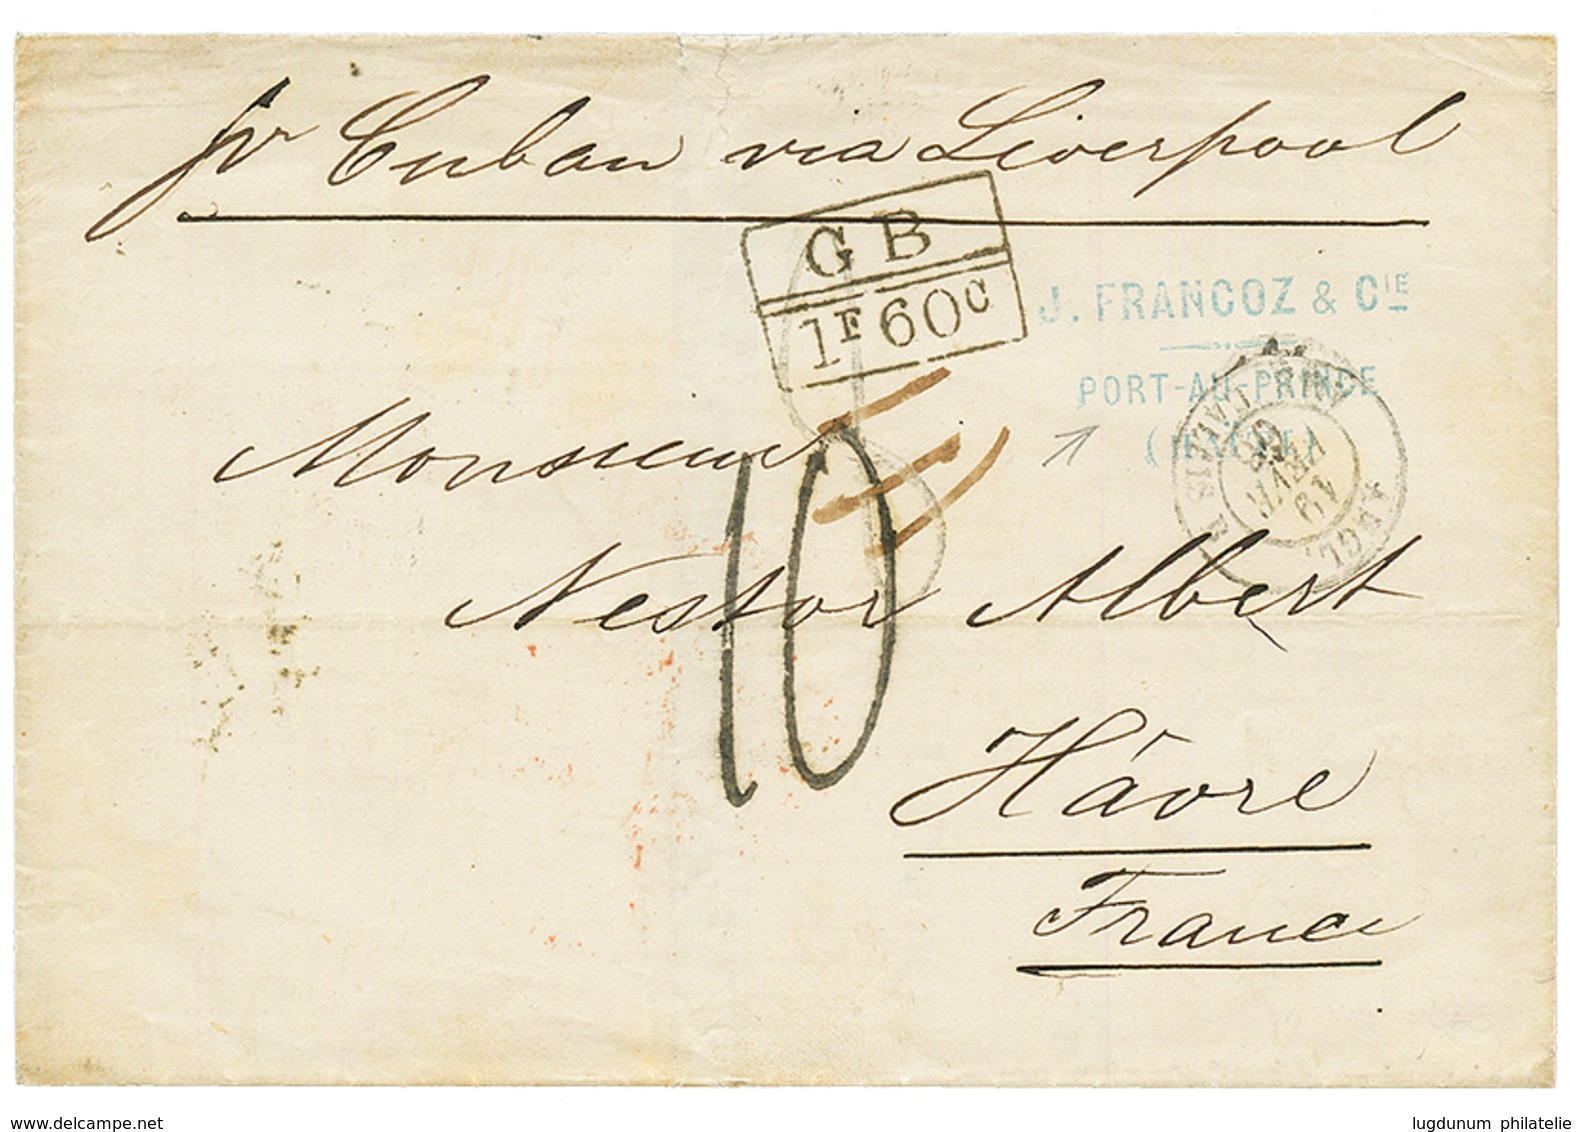 pr Cuban via Liverpool
G B
1F60C
J. FRANCOZ & CIE
PORT-AU-PRINCE
(HAITI)
ANGL. AMB. CALAIS
19 AVRIL 69
Monsieur
10
Nestor Albert
Hâvre
France
www.delcampe.net
lugdunum philatelie